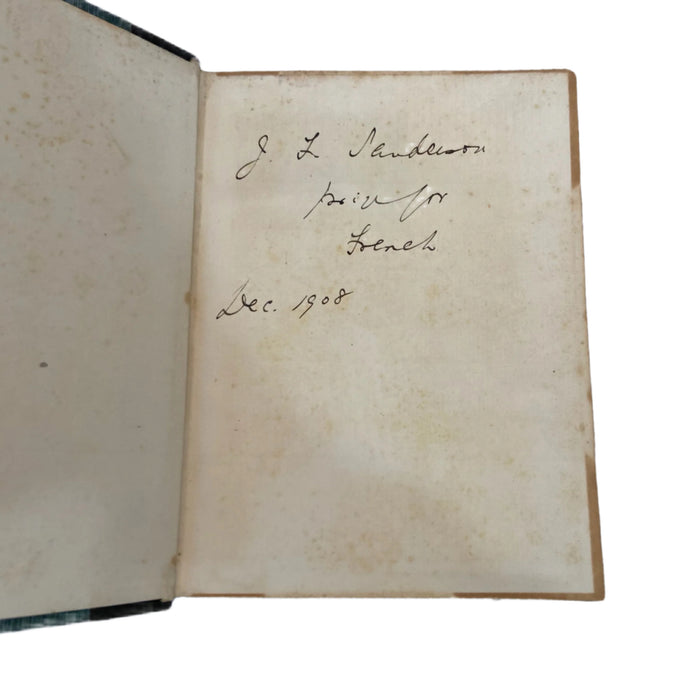 J. L. Sanderson
prize for
French
Dec. 1908